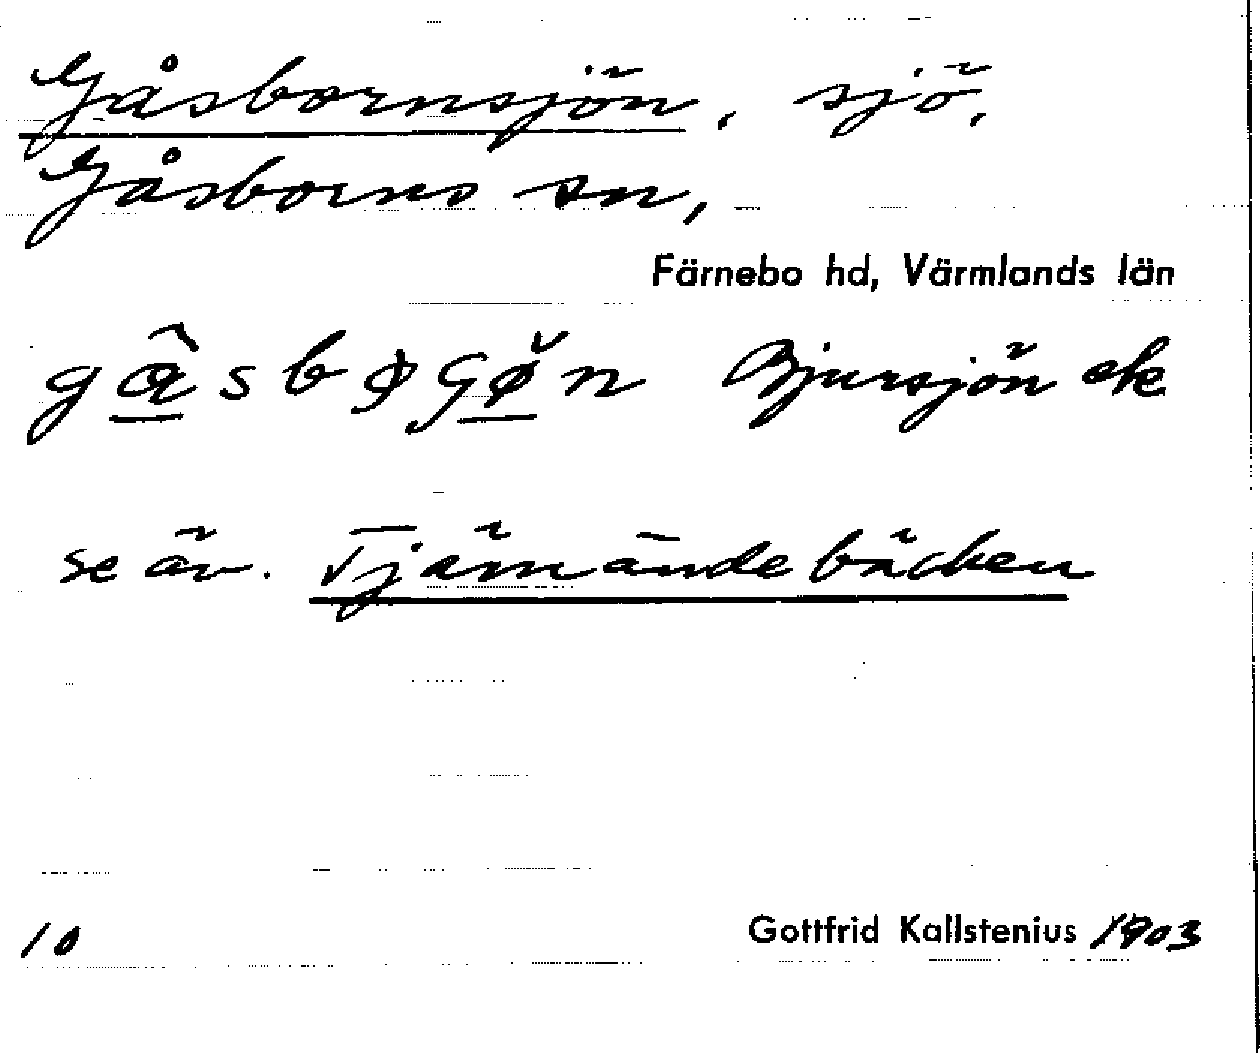 Gåsbornsjön, sjö,
Gåsborns sn,
Färnebo hd, Värmlands län
Bjursjön ek
se äv. Tjärnändebäcken
10
Gottfrid Kallstenius 1903